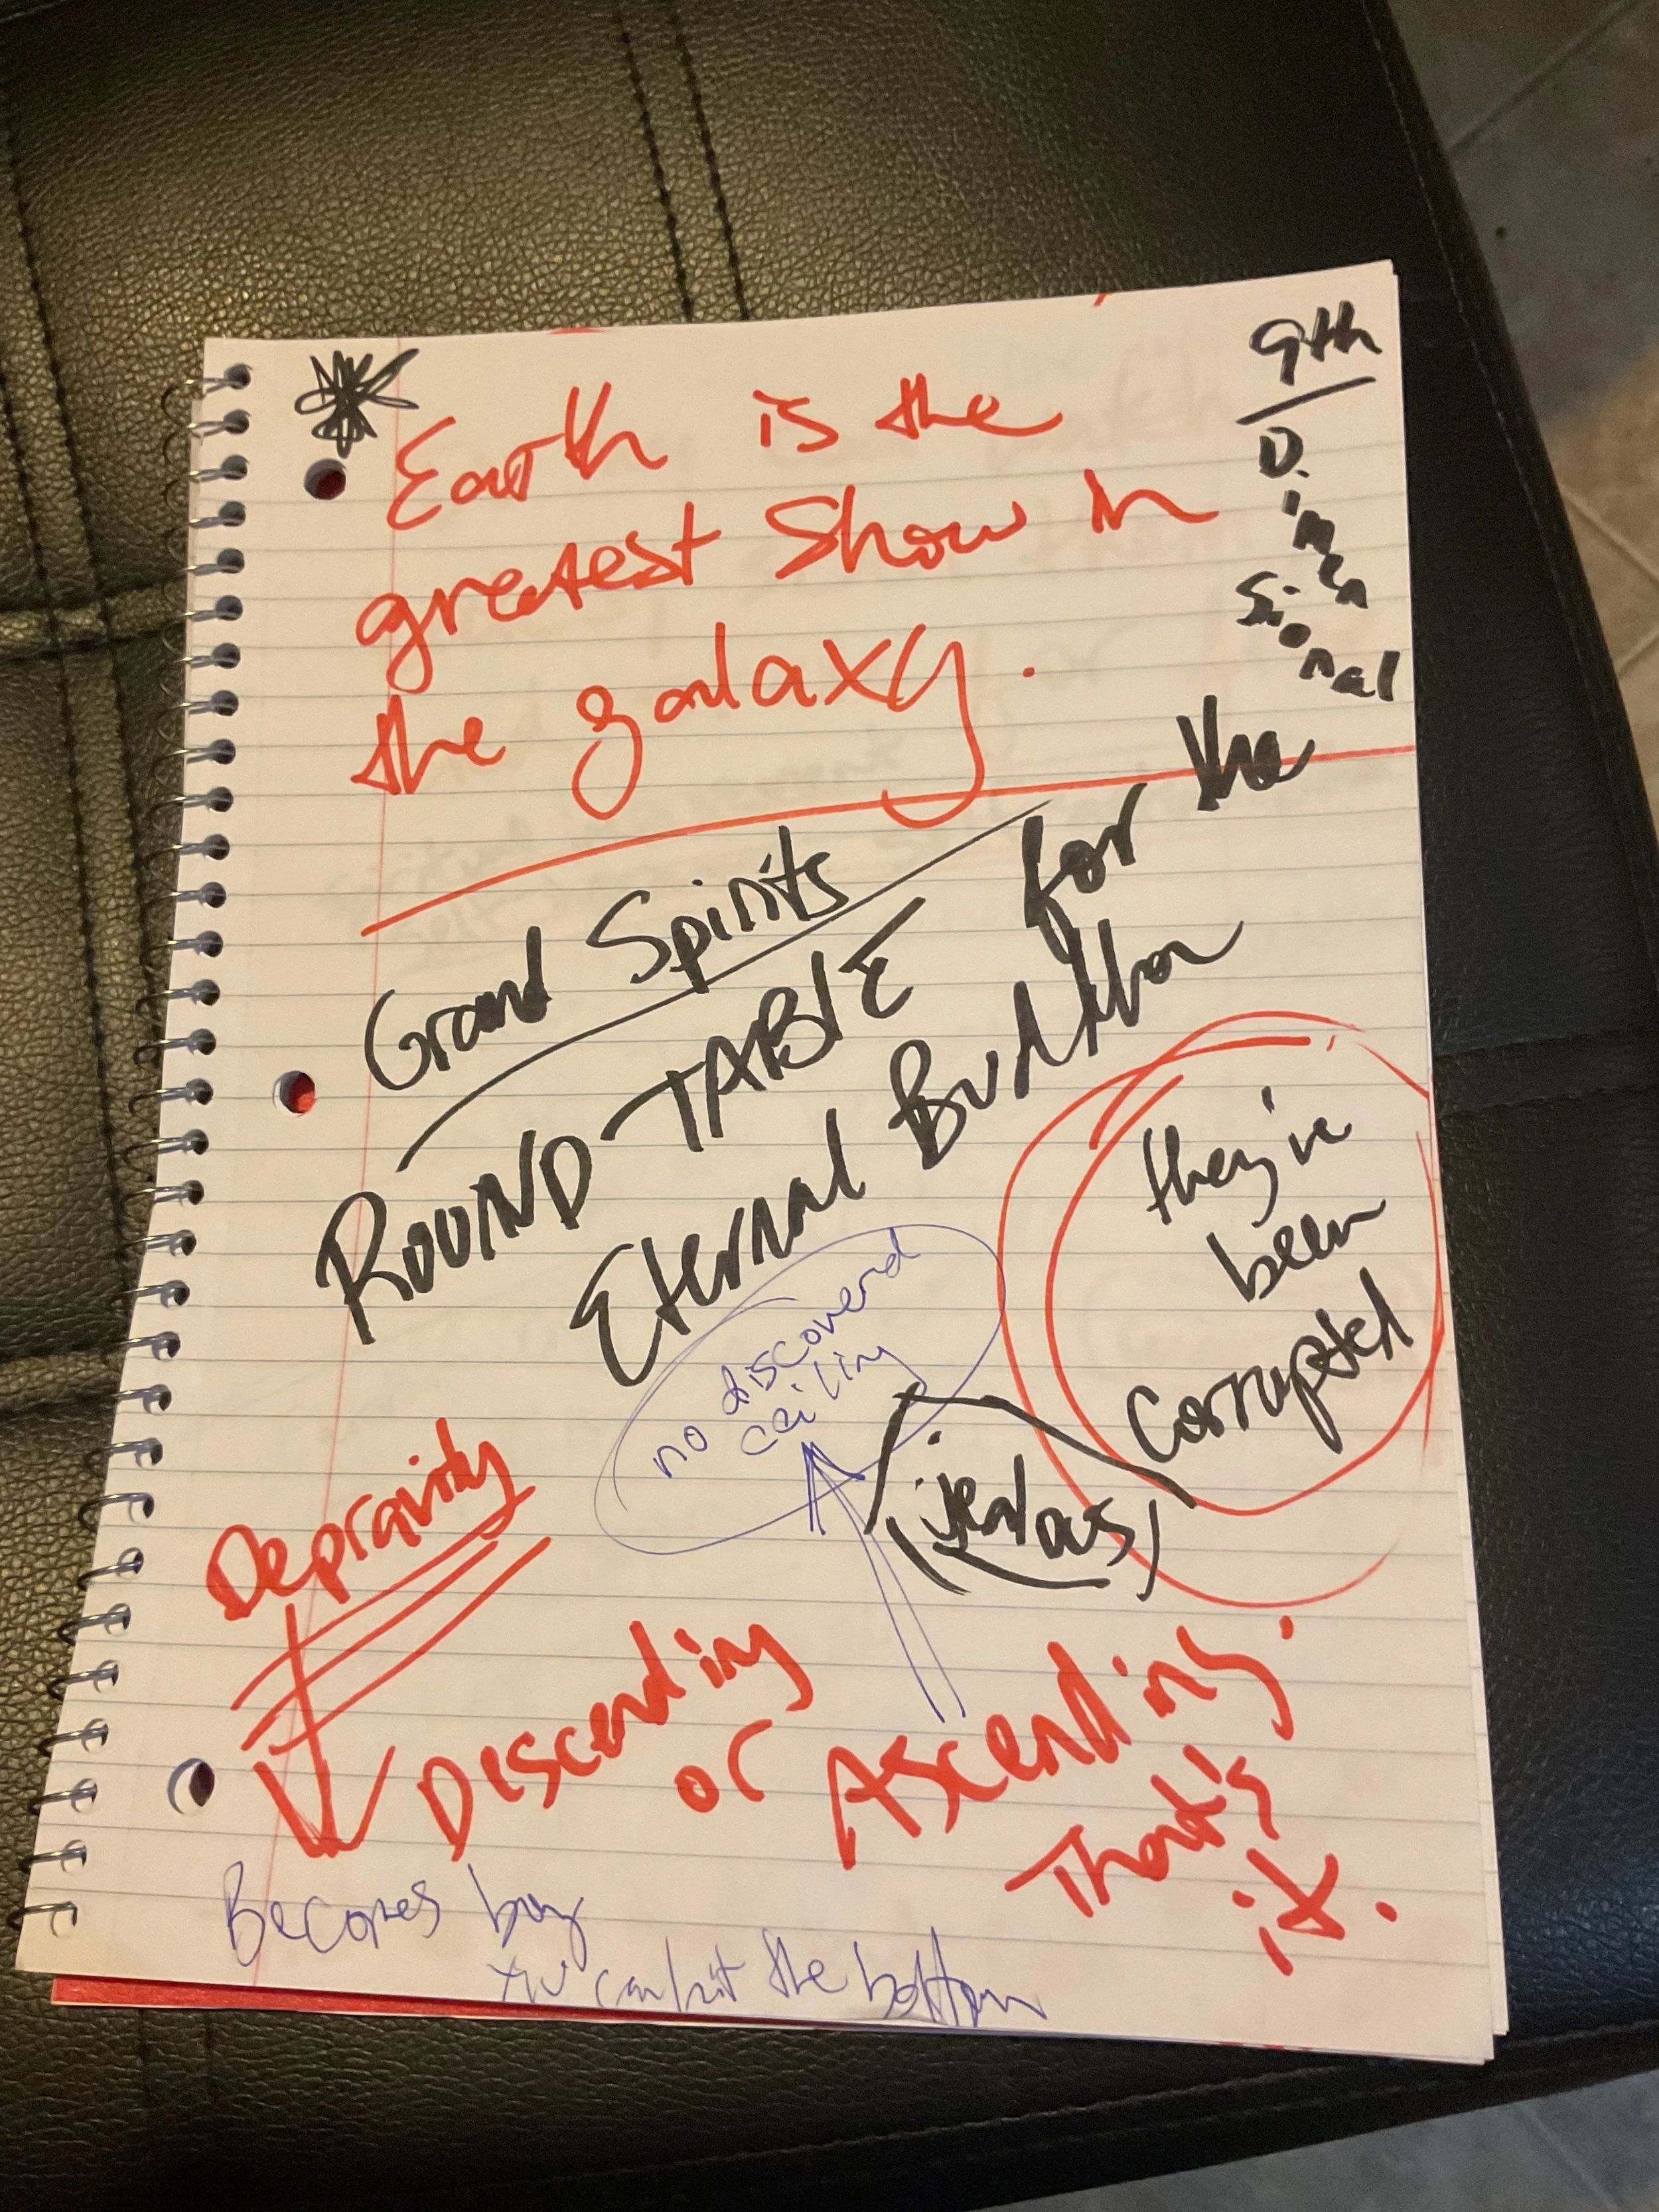 9th
D.imensional
Earth is the
greatest Show in
the galaxy.
Grand Spirits
ROUND TABLE for the
Eternal Buddha
they've
been
corrupted
no discovered
ceiling
(jealous)
Depravity
Descending
or Ascending.
That's
it.
Becomes
can hit the bottom